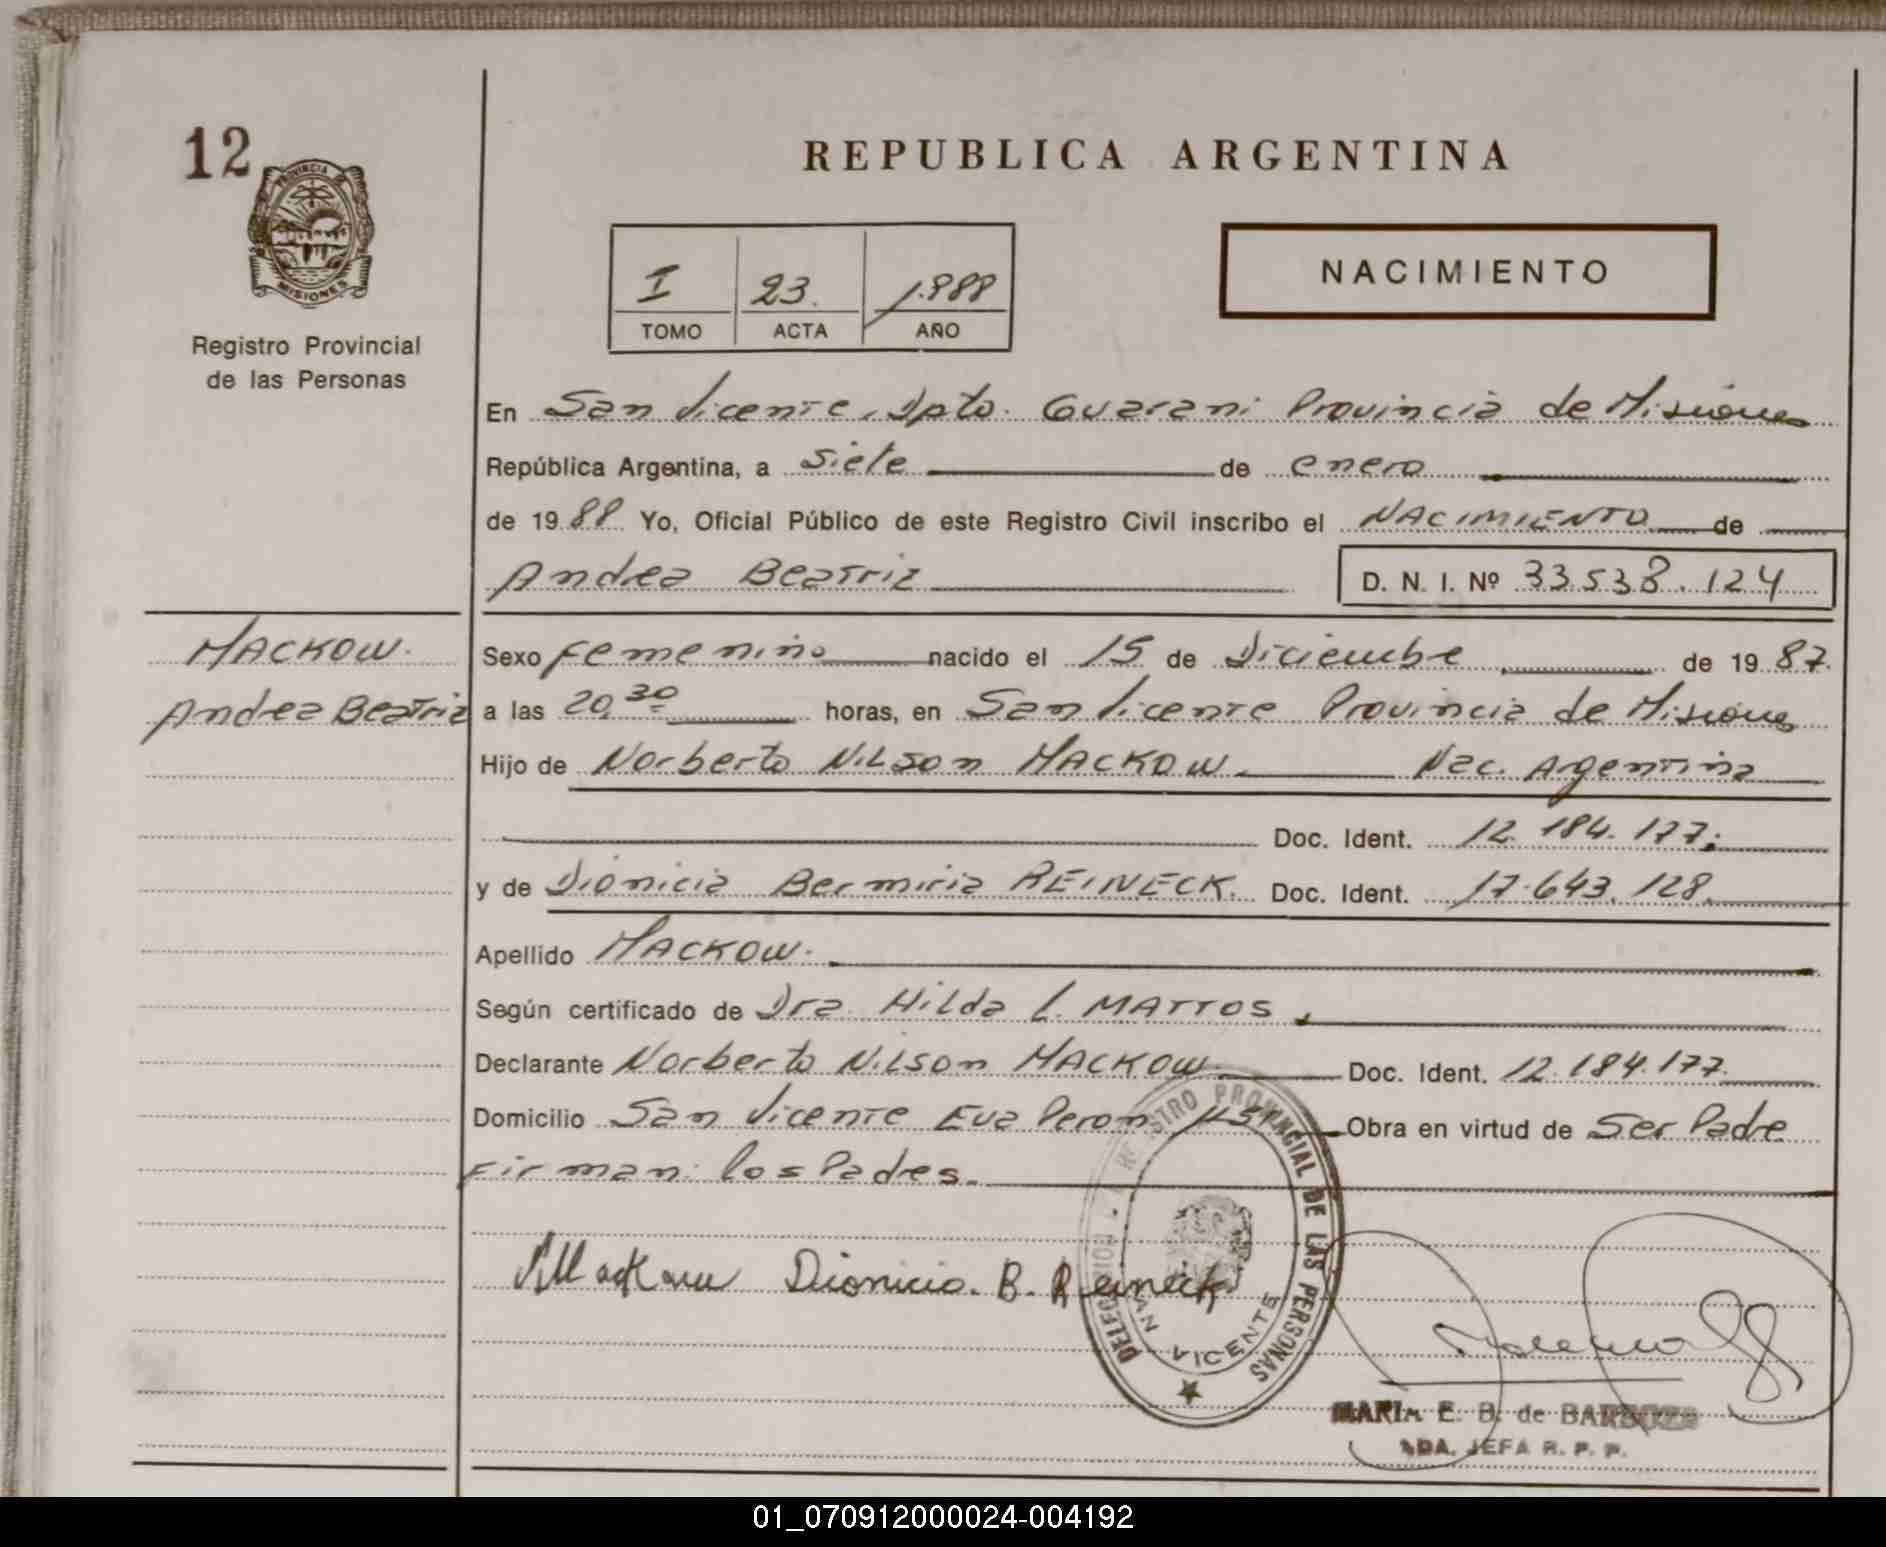 12
PROVINCIA DE
MISIONES
Registro Provincial
de las Personas
REPUBLICA ARGENTINA
I 23. 1.988
TOMO ACTA AÑO
NACIMIENTO
En San Vicente, Dpto. Guarani Provincia de Misiones
República Argentina, a siete de enero
de 1988 Yo, Oficial Público de este Registro Civil inscribo el NACIMIENTO de
Andrea Beatriz D. N. I. Nº 33.538.124
MACKOW.
Andrea Beatriz
Sexo femenino nacido el 15 de Diciembre de 1987.
a las 20,30 horas, en San Vicente Provincia de Misiones
Hijo de Norberto Nilson MACKOW. Nac. Agentina
Doc. Ident. 12.184.177.
y de Dionicia Bermiria REINECK. Doc. Ident. 17.643.128.
Apellido MACKOW.
Según certificado de Dra. Hilda L. MATTOS.
Declarante Norberto Nilson MACKOW Doc. Ident. 12.184.177.
Domicilio San Vicente Eva Peron Obra en virtud de Ser Padre
Firman: los Padres.
Mackow Dionicio. B. Reineck
REGISTRO PROVINCIAL DE LAS PERSONAS
SAN VICENTE
MARIA E. B. de BARBOZA
JEFA R. P. P.
01_070912000024-004192